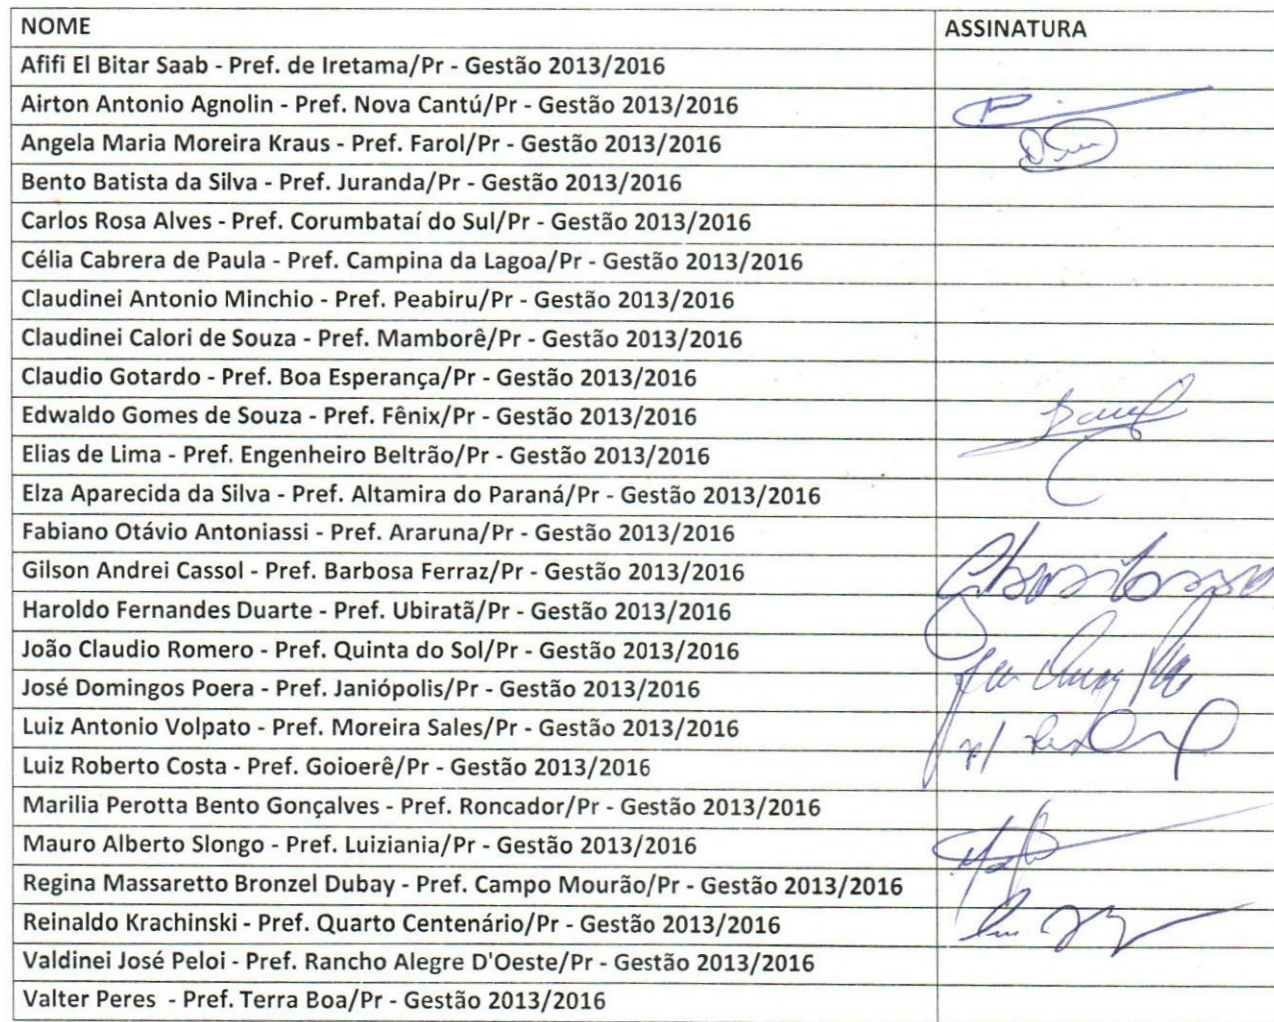 NOME ASSINATURA
Afifi El Bitar Saab - Pref. de Iretama/Pr - Gestão 2013/2016
Airton Antonio Agnolin - Pref. Nova Cantú/Pr - Gestão 2013/2016
Angela Maria Moreira Kraus - Pref. Farol/Pr - Gestão 2013/2016
Bento Batista da Silva - Pref. Juranda/Pr - Gestão 2013/2016
Carlos Rosa Alves - Pref. Corumbataí do Sul/Pr - Gestão 2013/2016
Célia Cabrera de Paula - Pref. Campina da Lagoa/Pr - Gestão 2013/2016
Claudinei Antonio Minchio - Pref. Peabiru/Pr - Gestão 2013/2016
Claudinei Calori de Souza - Pref. Mamborê/Pr - Gestão 2013/2016
Claudio Gotardo - Pref. Boa Esperança/Pr - Gestão 2013/2016
Edwaldo Gomes de Souza - Pref. Fênix/Pr - Gestão 2013/2016
Elias de Lima - Pref. Engenheiro Beltrão/Pr - Gestão 2013/2016
Elza Aparecida da Silva - Pref. Altamira do Paraná/Pr - Gestão 2013/2016
Fabiano Otávio Antoniassi - Pref. Araruna/Pr - Gestão 2013/2016
Gilson Andrei Cassol - Pref. Barbosa Ferraz/Pr - Gestão 2013/2016
Haroldo Fernandes Duarte - Pref. Ubiratã/Pr - Gestão 2013/2016
João Claudio Romero - Pref. Quinta do Sol/Pr - Gestão 2013/2016
José Domingos Poera - Pref. Janiópolis/Pr - Gestão 2013/2016
Luiz Antonio Volpato - Pref. Moreira Sales/Pr - Gestão 2013/2016
Luiz Roberto Costa - Pref. Goioerê/Pr - Gestão 2013/2016
Marilia Perotta Bento Gonçalves - Pref. Roncador/Pr - Gestão 2013/2016
Mauro Alberto Slongo - Pref. Luiziania/Pr - Gestão 2013/2016
Regina Massaretto Bronzel Dubay - Pref. Campo Mourão/Pr - Gestão 2013/2016
Reinaldo Krachinski - Pref. Quarto Centenário/Pr - Gestão 2013/2016
Valdinei José Peloi - Pref. Rancho Alegre D'Oeste/Pr - Gestão 2013/2016
Valter Peres - Pref. Terra Boa/Pr - Gestão 2013/2016